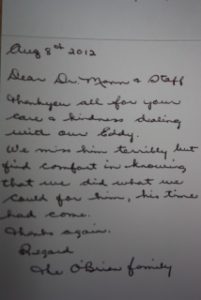 Aug 8th 2012
Dear Dr. Mann & Staff
Thankyou all for your
care & kindness dialing
with our Eddy.
We miss him terribly but
find comfort in knowing
that we did what we
could for him, his time
had come.
Thanks again.
Regard
The O'Brien family